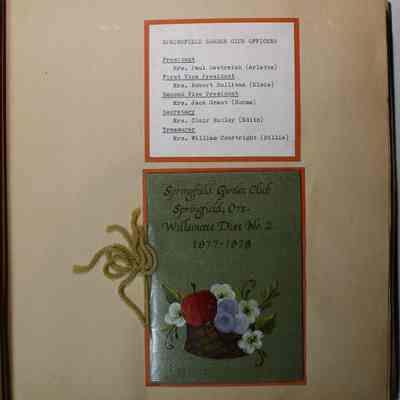 SPRINGFIELD GARDEN CLUB OFFICERS
President
Mrs. Paul Oestreich (Arlette)
First Vice President
Mrs. Robert Sullivan (Elsie)
Second Vice President
Mrs. Jack Grant (Norma)
Secretary
Mrs. Clair Bailey (Edith)
Treasurer
Mrs. William Courtright (Billie)
Springfield Garden Club
Springfield, Ore.
Willamette Dist. No. 2
1977-1978